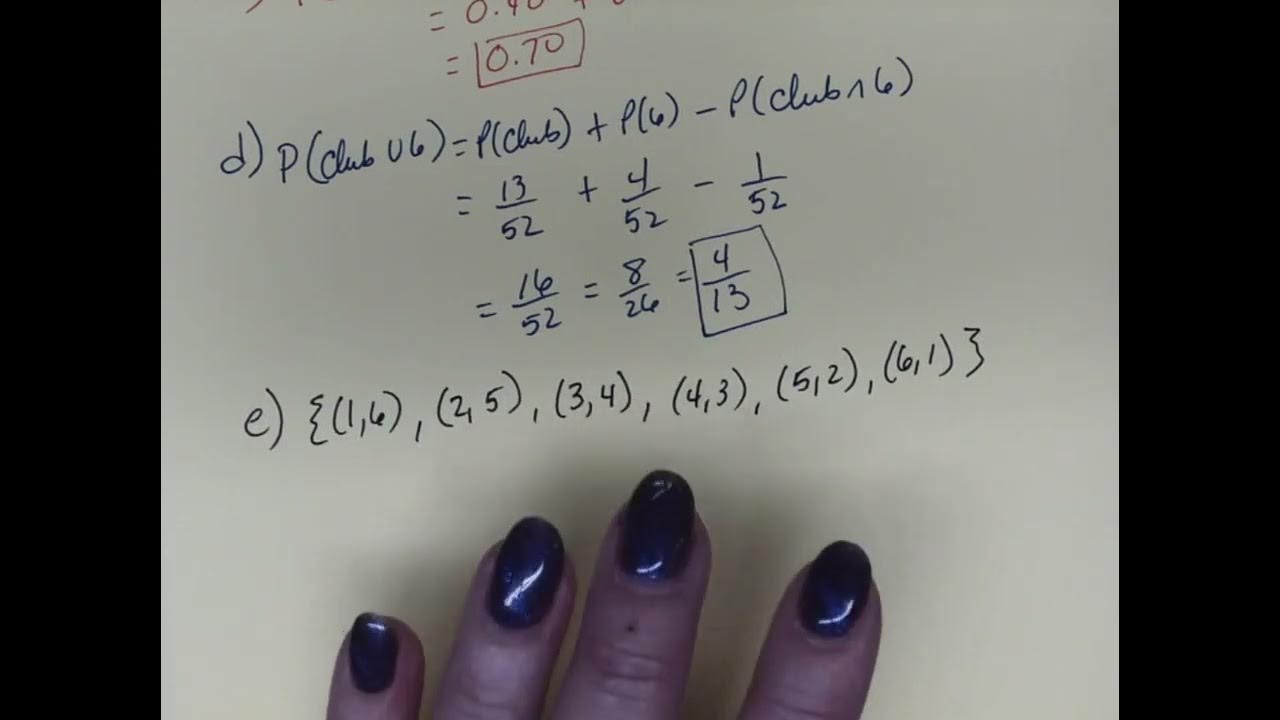 = 0.40 +
= 0.70
d) P(club ∪ 6) = P(club) + P(6) - P(club ∩ 6)
= 13/52 + 4/52 - 1/52
= 16/52 = 8/26 = 4/13
e) {(1,6), (2,5), (3,4), (4,3), (5,2), (6,1)}